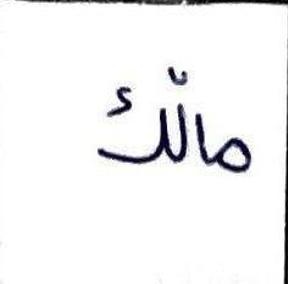 مالّك